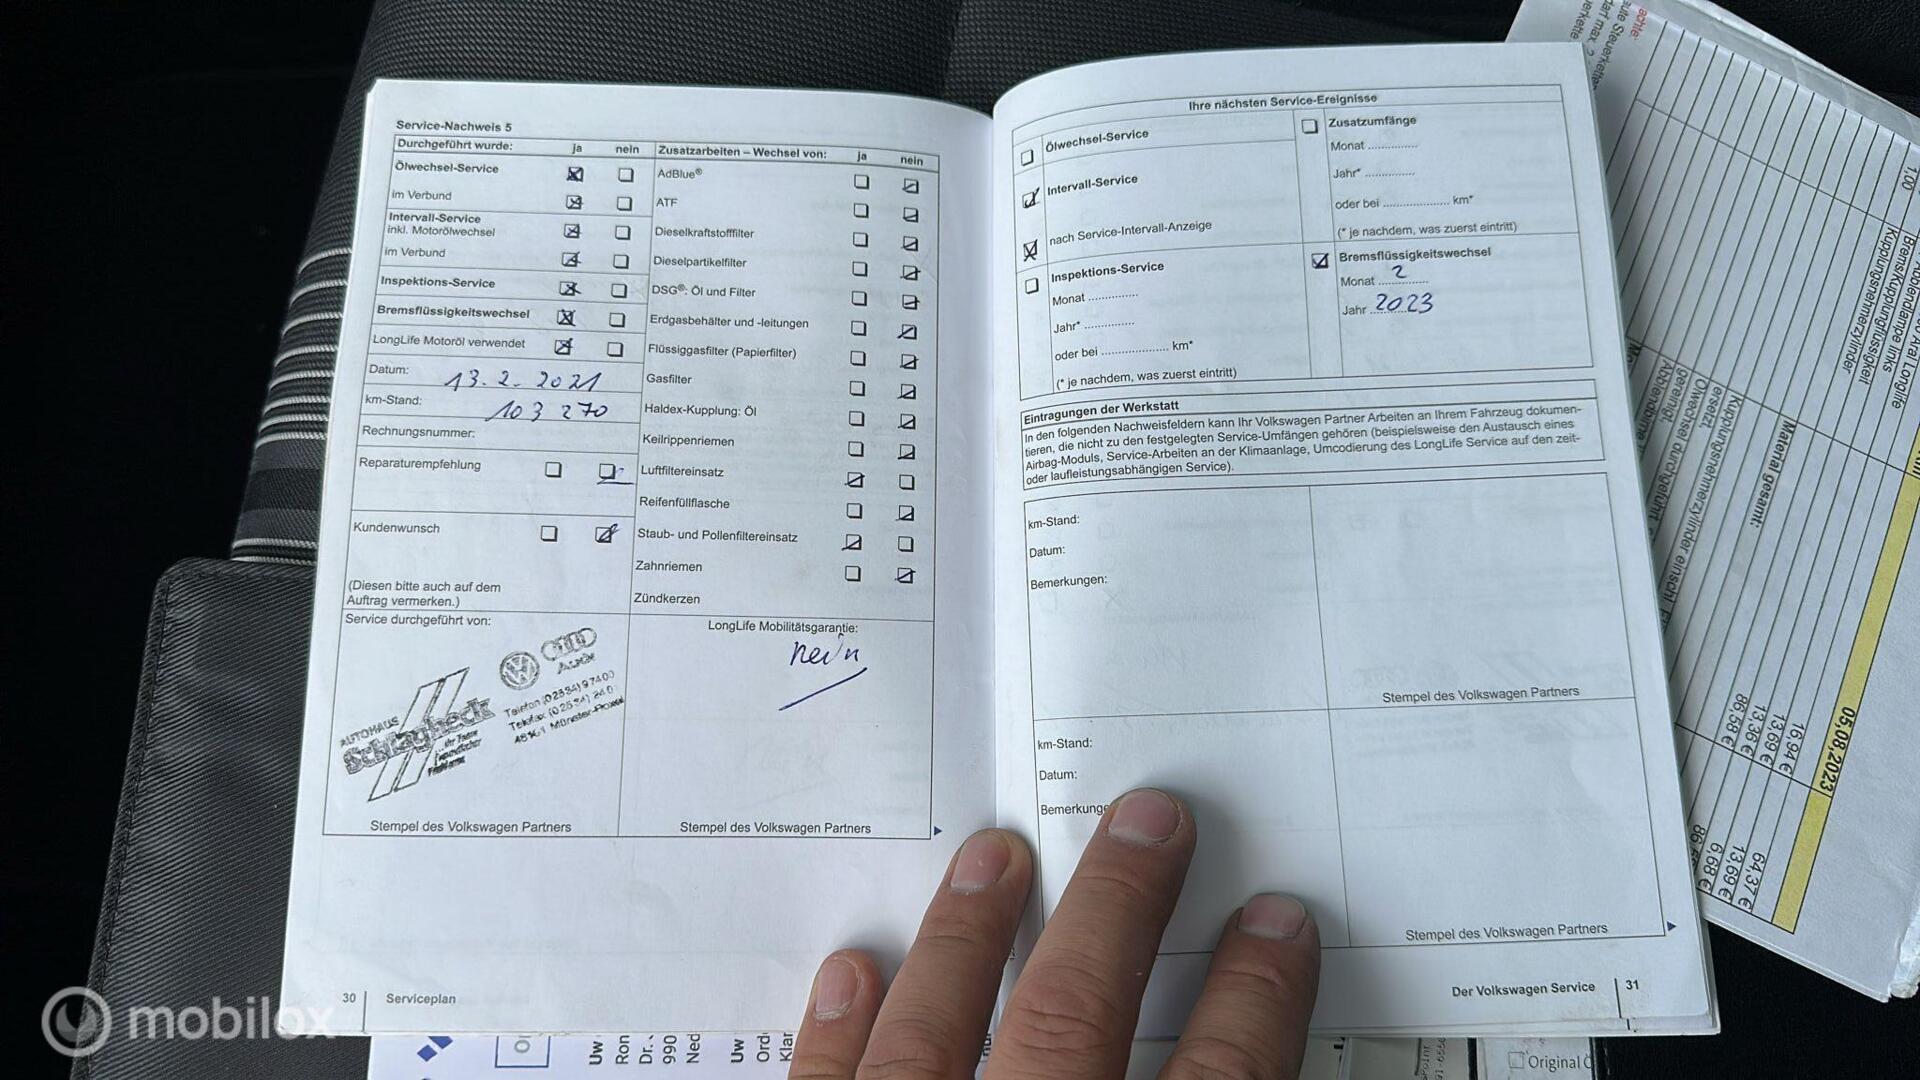 Service-Nachweis 5
Durchgeführt wurde: ja nein
Ölwechsel-Service
im Verbund
Intervall-Service
inkl. Motorölwechsel
im Verbund
Inspektions-Service
Bremsflüssigkeitswechsel
LongLife Motoröl verwendet
Datum: 13.2.2021
km-Stand: 103 270
Rechnungsnummer:
Reparaturempfehlung
Kundenwunsch
(Diesen bitte auch auf dem
Auftrag vermerken.)
Zusatzarbeiten – Wechsel von: ja nein
AdBlue®
ATF
Dieselkraftstofffilter
Dieselpartikelfilter
DSG®: Öl und Filter
Erdgasbehälter und -leitungen
Flüssiggasfilter (Papierfilter)
Gasfilter
Haldex-Kupplung: Öl
Keilrippenriemen
Luftfiltereinsatz
Reifenfüllflasche
Staub- und Pollenfiltereinsatz
Zahnriemen
Zündkerzen
Service durchgeführt von:
AUTOHAUS
Schlagheck
Audi
Stempel des Volkswagen Partners
LongLife Mobilitätsgarantie:
nein
Stempel des Volkswagen Partners
30 Serviceplan
Ihre nächsten Service-Ereignisse
Ölwechsel-Service
Intervall-Service
nach Service-Intervall-Anzeige
Inspektions-Service
Monat ...............
Jahr* ...............
oder bei .................... km*
(* je nachdem, was zuerst eintritt)
Zusatzumfänge
Monat ...............
Jahr* ...............
oder bei .................... km*
(* je nachdem, was zuerst eintritt)
Bremsflüssigkeitswechsel
Monat 2
Jahr 2023
Eintragungen der Werkstatt
In den folgenden Nachweisfeldern kann Ihr Volkswagen Partner Arbeiten an Ihrem Fahrzeug dokumen-
tieren, die nicht zu den festgelegten Service-Umfängen gehören (beispielsweise den Austausch eines
Airbag-Moduls, Service-Arbeiten an der Klimaanlage, Umcodierung des LongLife Service auf den zeit-
oder laufleistungsabhängigen Service).
km-Stand:
Datum:
Bemerkungen:
Stempel des Volkswagen Partners
km-Stand:
Datum:
Bemerkunge
Stempel des Volkswagen Partners
Der Volkswagen Service 31
Aral Longlife
Abblendlampe links
Brems/Kupplungflüssigkeit
Kupplungsnehmerzylinder
Material gesamt:
05.08.2023
16,94 €
13,69 €
13,36 €
86,58 €
64,37 €
13,69 €
6,68 €
1,00
Uw
Ron
Dr.
990
Ned
Uw
Ord
Klar
Original
mobilox